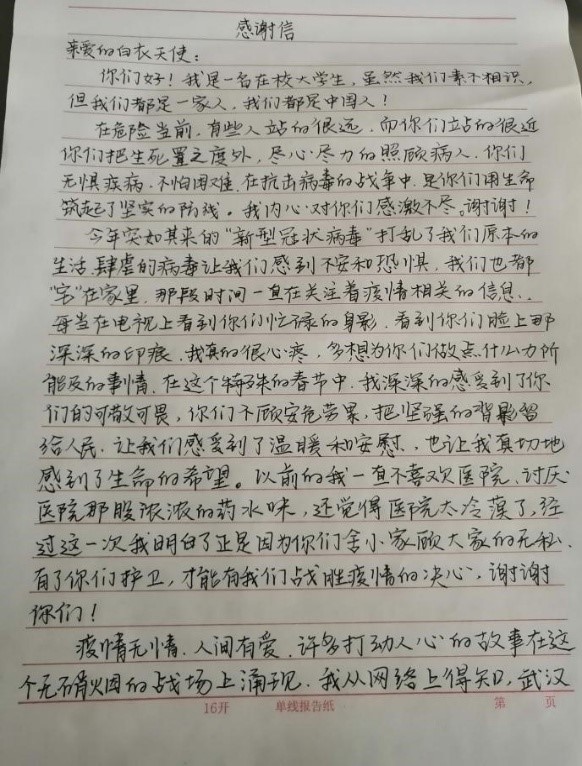 感谢信
亲爱的白衣天使:
你们好!我是一名在校大学生,虽然我们素不相识,
但我们都是一家人,我们都是中国人!
在危险当前,有些人站的很远,而你们站的很近
你们把生死置之度外,尽心尽力的照顾病人.你们
无惧疾病.不怕困难.在抗击病毒的战争中.是你们用生命
筑起了坚实的防线。我内心对你们感激不尽。谢谢!
今年突如其来的“新型冠状病毒”打乱了我们原本的
生活.肆虐的病毒让我们感到不安和恐惧,我们也都
“宅”在家里.那段时间一直在关注着疫情相关的信息.
每当在电视上看到你们忙碌的身影.看到你们脸上那
深深的印痕.我真的很心疼,多想为你们做点什么力所
能及的事情.在这个特殊的春节中.我深深的感受到了你
们的可敬可畏,你们不顾安危劳累,把坚强的背影留
给人民.让我们感受到了温暖和安慰.也让我真切地
感到了生命的希望。以前的我一直不喜欢医院.讨厌
医院那股浓浓的药水味,还觉得医院太冷漠了.经
过这一次我明白了正是因为你们舍小家顾大家的无私.
有了你们护卫,才能有我们战胜疫情的决心,谢谢
你们!
疫情无情.人间有爱.许多打动人心的故事在这
个无硝烟的战场上涌现.我从网络上得知,武汉
16开 单线报告纸 第 页